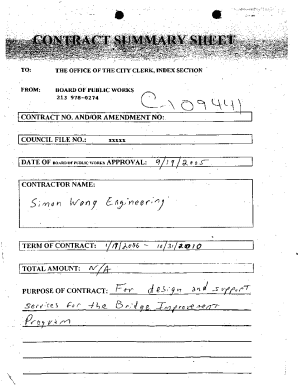 CONTRACT SUMMARY SHEET
TO: THE OFFICE OF THE CITY CLERK, INDEX SECTION
FROM: BOARD OF PUBLIC WORKS
213 978-0274
C-109441
CONTRACT NO. AND/OR AMENDMENT NO:
COUNCIL FILE NO.: xxxxx
DATE OF BOARD OF PUBLIC WORKS APPROVAL: 9/19/2005
CONTRACTOR NAME:
Simon Wong Engineering
TERM OF CONTRACT: 1/18/2006 - 10/31/2010
TOTAL AMOUNT: N/A
PURPOSE OF CONTRACT: For design and support
services for the Bridge Improvement
Program